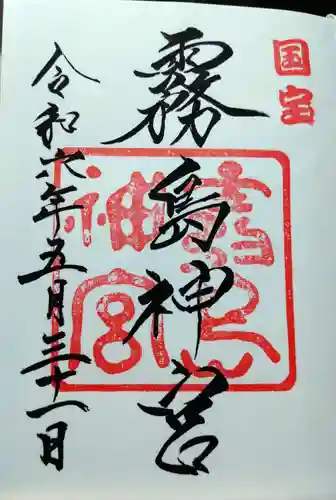 国宝
霧島神宮
令和六年五月三十一日